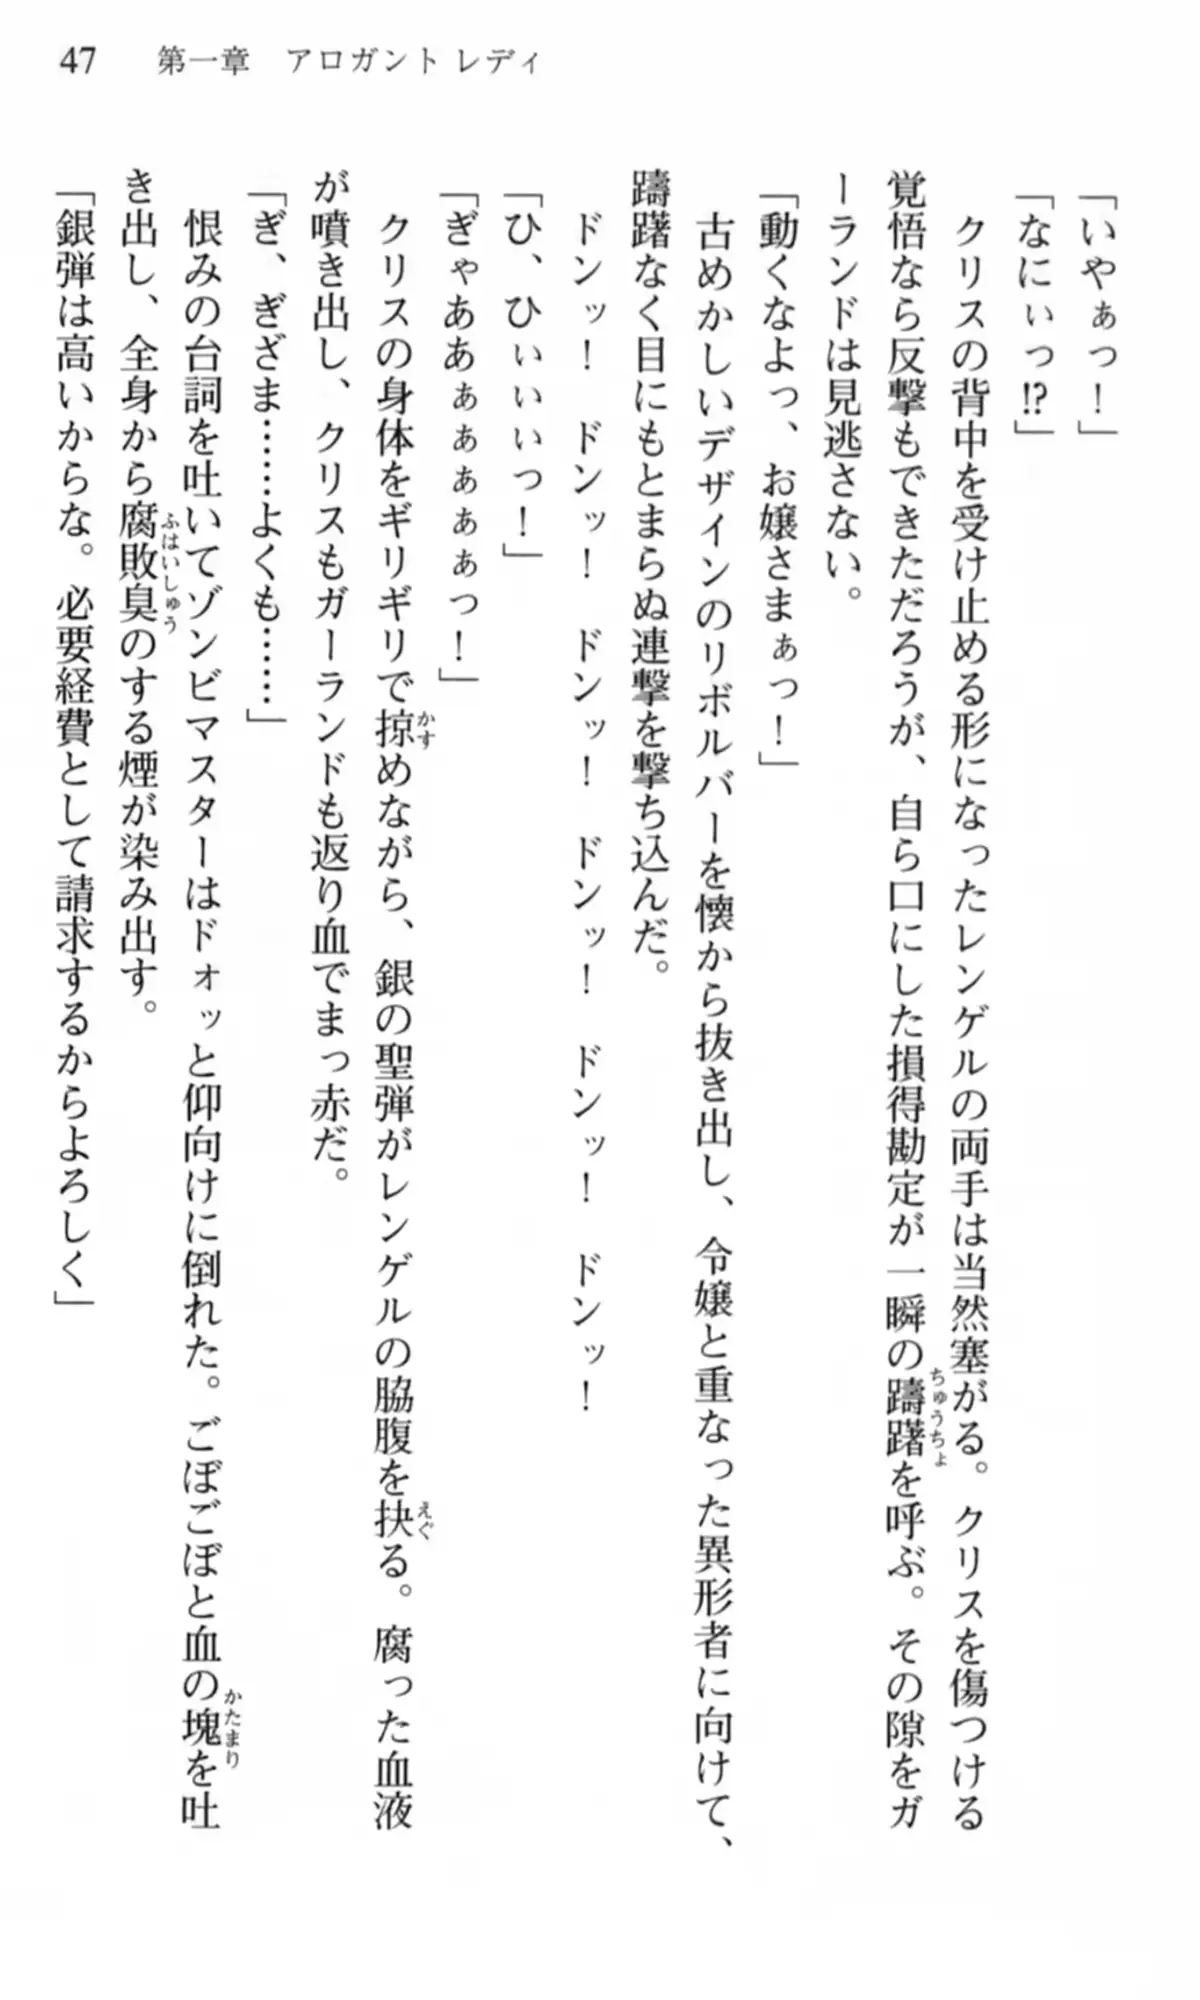 47　第一章　アロガント レディ
「いやぁっ！」
「なにぃっ!?」
　クリスの背中を受け止める形になったレンゲルの両手は当然塞がる。クリスを傷つける
覚悟なら反撃もできただろうが、自ら口にした損得勘定が一瞬の躊躇を呼ぶ。その隙をガ
ーランドは見逃さない。
「動くなよっ、お嬢さまぁっ！」
　古めかしいデザインのリボルバーを懐から抜き出し、令嬢と重なった異形者に向けて、
躊躇なく目にもとまらぬ連撃を撃ち込んだ。
　ドンッ！　ドンッ！　ドンッ！　ドンッ！　ドンッ！　ドンッ！
「ひ、ひぃぃぃっ！」
「ぎゃああぁぁぁぁぁっ！」
　クリスの身体をギリギリで掠めながら、銀の聖弾がレンゲルの脇腹を抉る。腐った血液
が噴き出し、クリスもガーランドも返り血でまっ赤だ。
「ぎ、ぎざま……よくも……」
　恨みの台詞を吐いてゾンビマスターはドォッと仰向けに倒れた。ごぼごぼと血の塊を吐
き出し、全身から腐敗臭のする煙が染み出す。
「銀弾は高いからな。必要経費として請求するからよろしく」
ちゅうちょ
かす
えぐ
かたまり
ふはいしゅう